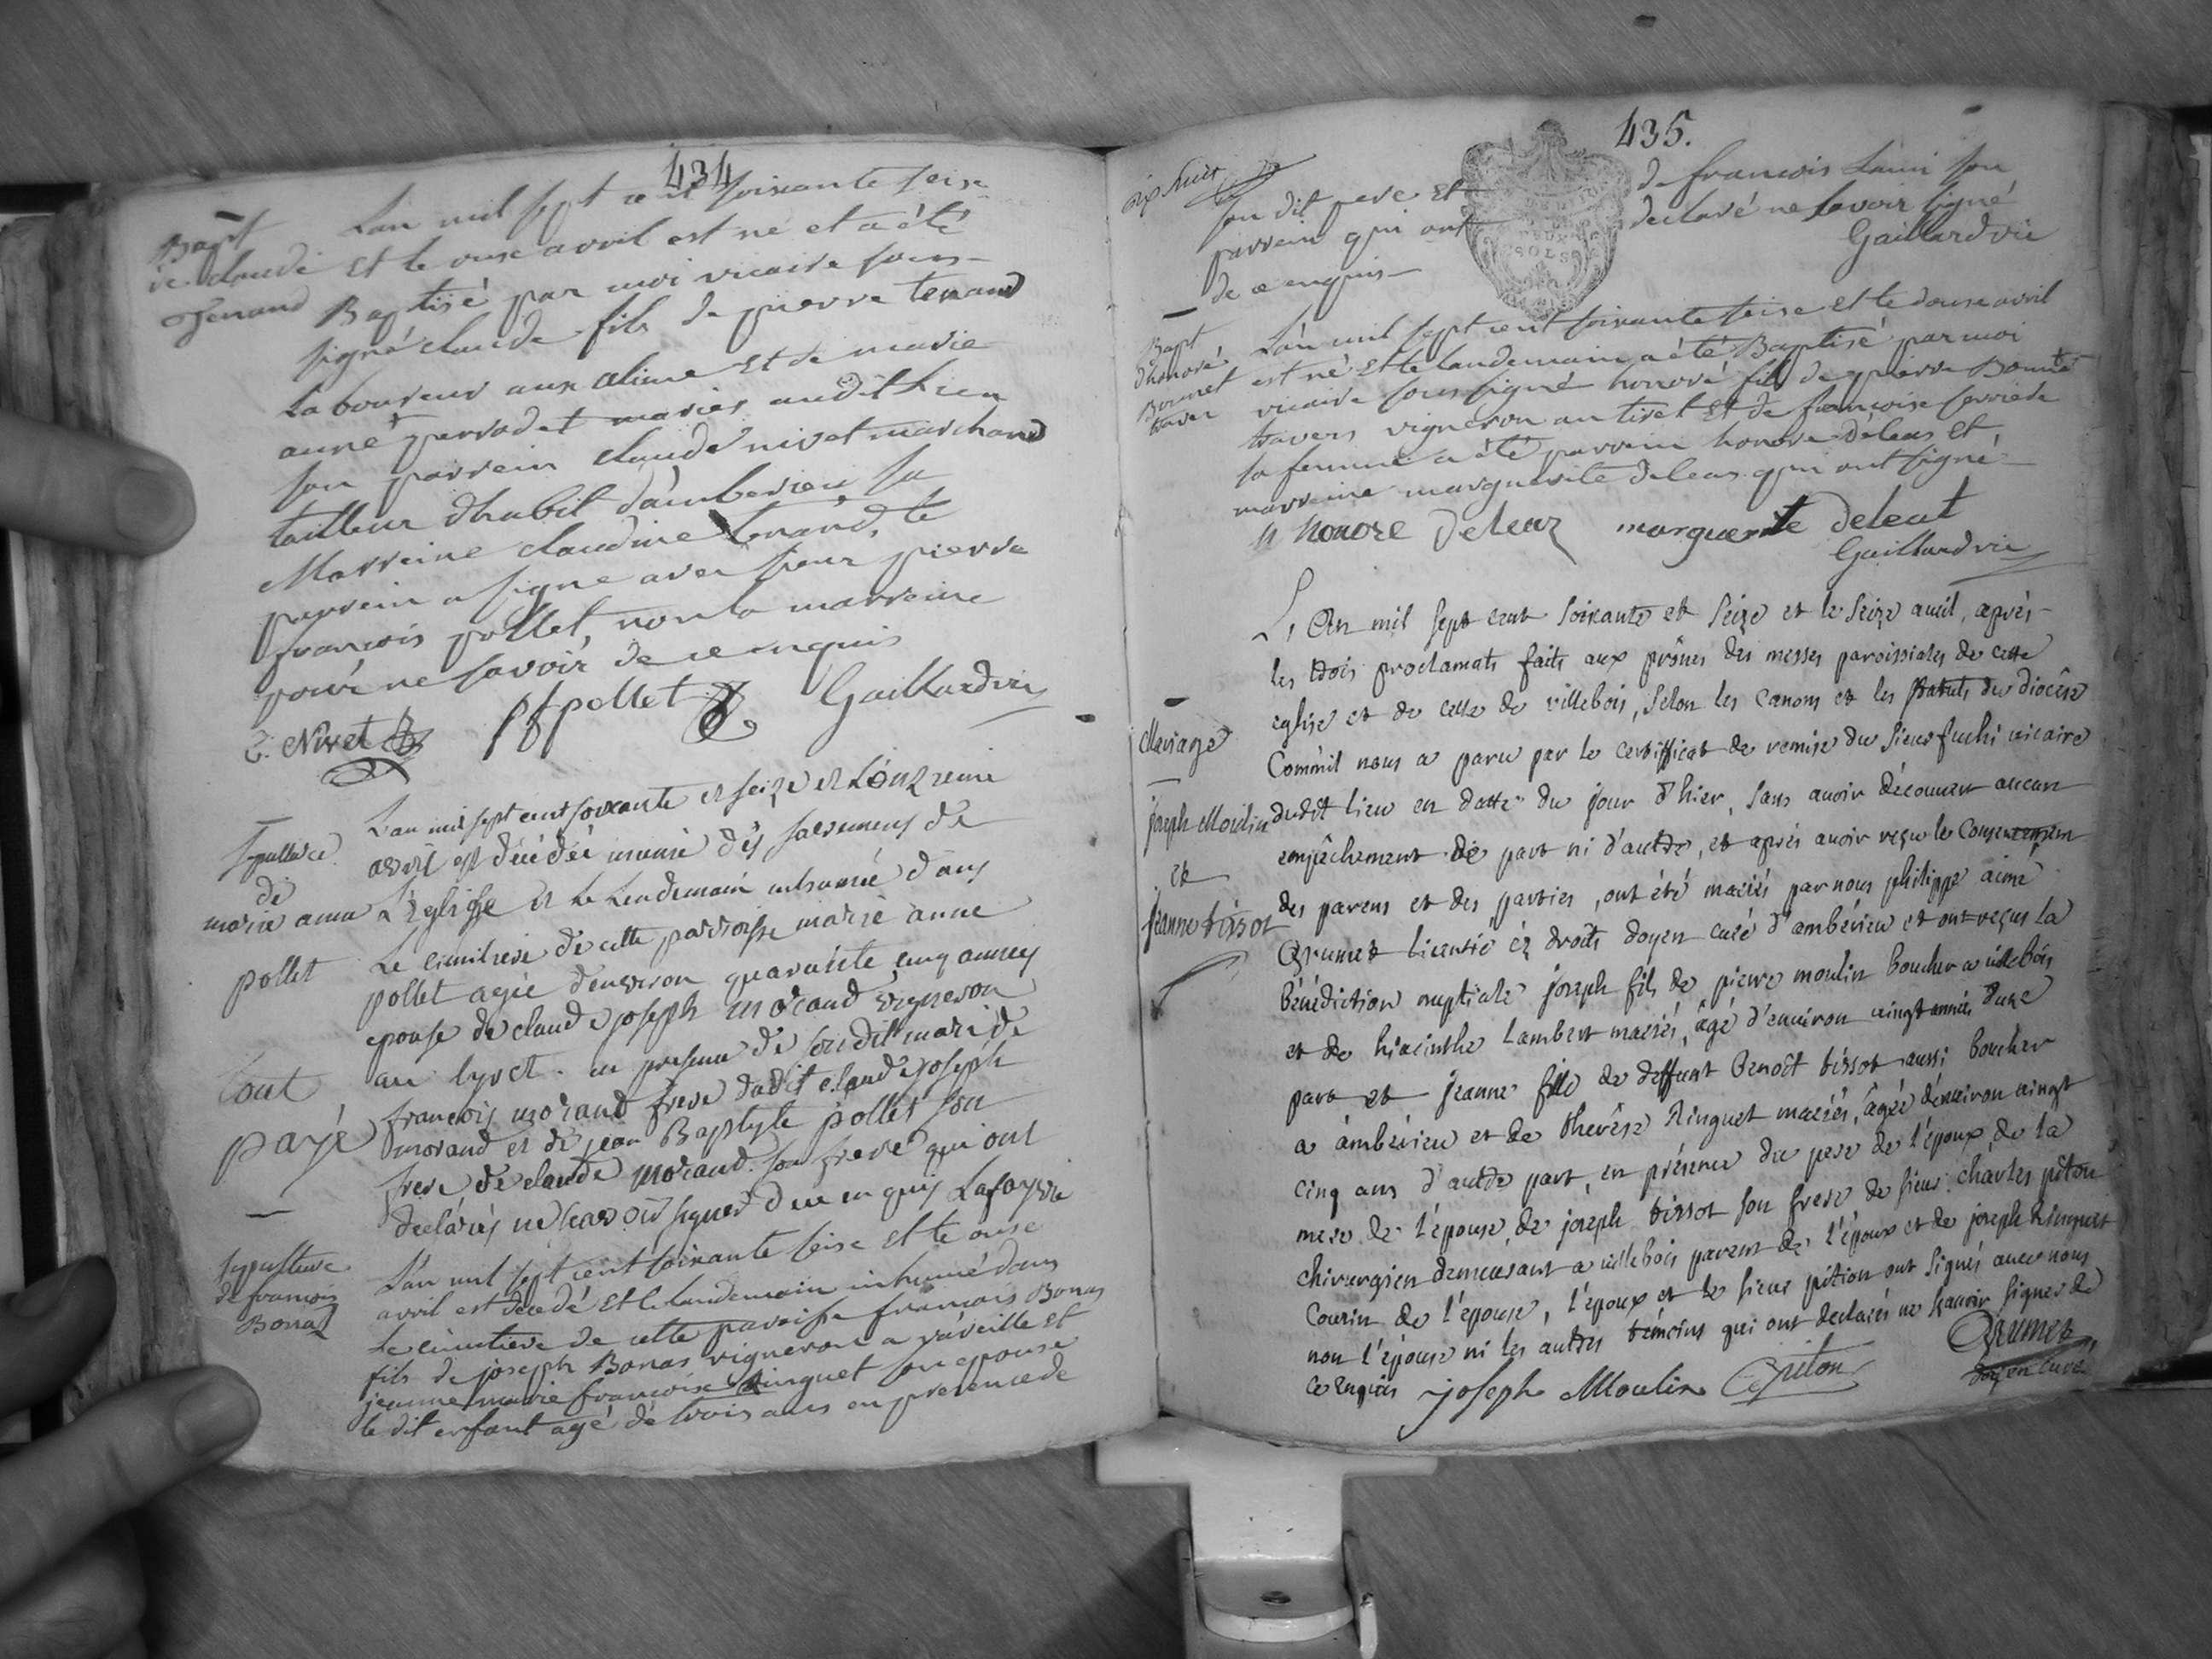 434
Bapt
de claude
Tenand
L'an mil sept cent soixante seise
et le onse avril est né et a été
Baptisé par moi vicaire sous-
signé claude fils de pierre tenand
laboureur aux alime et de marie
anne perrodet mariés audit lieu
son parrein claude nivet marchand
tailleur d'habit d'amberieu sa
Marreine claudine tenand, le
parrein a signe avec sieur pierre
françois pollet, non la marreine
pour ne savoir de ce enquis
C. Nivet pfpollet Gaillard vic
Sepulture
de
marie anne
pollet
tout
payé
L'an mil sept cent soixante et seize et L'onzieme
avril est décédée munie des sacremens de
L'Eglise et le Lendemain inhumée dans
Le cimitiere de cette parroisse marie anne
pollet agée d'environ quarante cinq années
epouse de claude joseph morand vigneron
au tyret. en presence de son dit mari de
françois morand frere dudit claude joseph
morand et de jean Baptyste pollet son
frere de claude morand son frere qui ont
declarés ne scavoir signer de ce enquis Lafayvie
sepulture
de francois
Bonaz
L'an mil sept cent soixante seise et le onse
avril est décedé et le landemain inhumé dans
le cimetiere de cette paroisse francois Bonas
fils de joseph Bonas vigneron a vareille et
jeanne marie françoise Ringuet son epouse
le dit enfant agé de trois ans en presence de
435.
dix huit
son dit pere et de francois Lauin son
parrein qui ont declaré ne savoir signé
de ce enquis- Gaillard vic
Bapt
d'honoré
Bonnet
traver
L'an mil sept cent soixante seise et le douse avril
est né et le landemain a été Baptisé par moi
vicaire soussigné honoré fils de pierre Bonnet
travers vigneron au tiret et de françoise serriere
sa femme a été parrein honore deleas et
marreine marguerite deleas qui ont signé
h honore Deleaz marguerite deleat
Gaillard vic
Mariage
joseph Moulin
et
jeanne tissot
L'An mil sept cent soixante et seize et le seize avril, après
les trois proclamats faits aux prônes des messes paroissiales de cette
eglise et de celle de villebois, selon les canons et les statuts du diocèse
Comm'il nous a paru par le certifficat de remise du sieur fuchi vicaire
dudit lieu en datte du jour d'hier, sans avoir découvert aucun
empêchement de part ni d'autre, et après avoir reçu le consentement
des parens et des parties, ont été mariés par nous philippe aimé
Grumet licentié ez droits doyen curé d'ambérieu et ont reçus la
bénédiction nuptiale joseph fils de pierre moulin boucher a villebois
et de hiacinthe Lambert mariés, âgé d'environ vingt années d'une
part et jeanne fille de deffunt Benoît tissot aussi boucher
a ambérieu et de therêse Ringuet mariés, âgée d'environ vingt
cinq ans d'autre part, en présence du pere de l'époux de la
mere de l'épouse, de joseph tissot son frere de sieur charles piton
chirurgien demeurant a villebois parent de l'époux et de joseph Ringuet
Cousin de l'épouse, l'époux et le sieur pition ont signés avec nous
non l'épouse ni les autres témoins qui ont declarés ne scavoir signer de
ce enquis joseph Moulin C piton Grumet
doyen curé